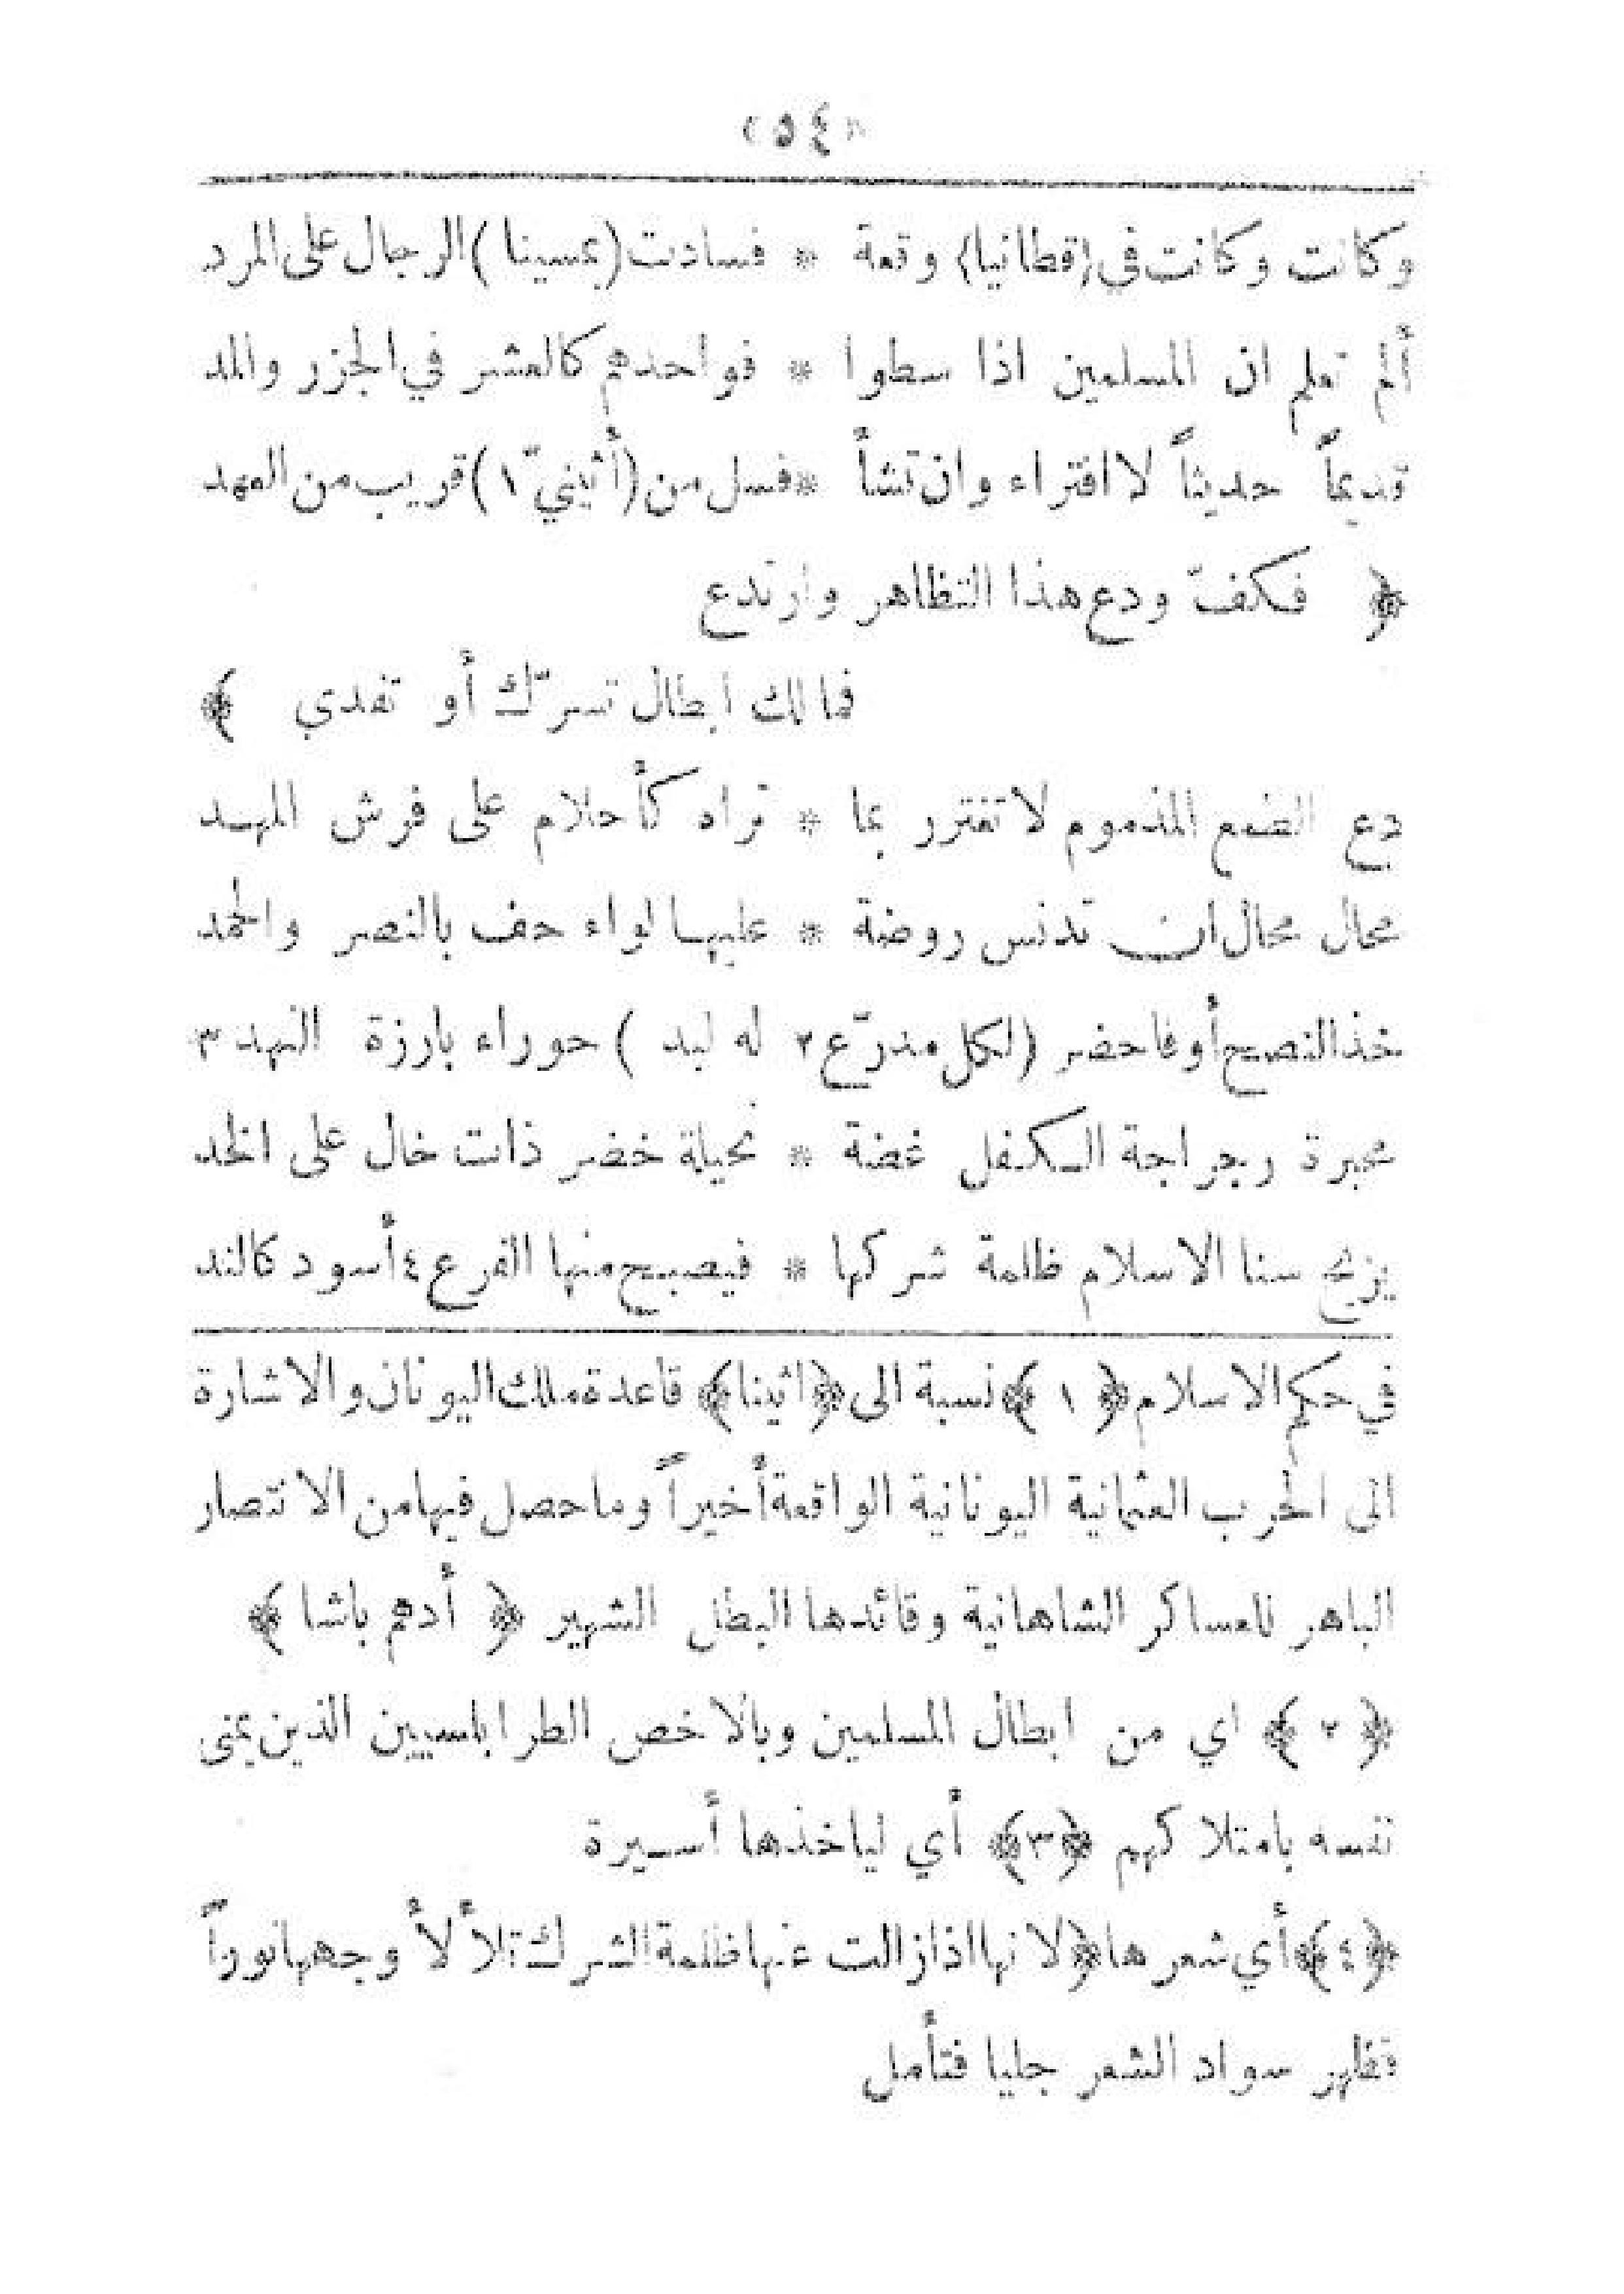 «٥٤»
وكانت وكانت في (قطانيا) وقعة * فسادت (بمسينا) الرجال على المرد
ألم تعلم ان المسلمين اذا سطوا * فواحدهم كالعشر في الجزر والمد
قديماً حديثاً لا افتراء وان تشأ * فسل من (أثينيّ ١) قريب من العهد
﴿ فكفّ ودع هذا التظاهر وارتدع
فما لك ابطال تسرّك أو تفدي ﴾
دع الطمع المذموم لا تغترر بما * تراه كأحلام على فرش المهد
محال محال ان تدنس روضة * عليها لواء حف بالنصر والحمد
خذ النصح أو فاحضر (لكل مدرّع ٢ له لبد) حوراء بارزة النهد ٣
رجراجة الكفل غضة * نحيلة خصر ذات خال على الخد
يزيح سنا الاسلام ظلمة شركها * فيصبح منها الفرع ٤ أسود كالند
في حكم الاسلام ﴿ ١ ﴾ نسبة الى ﴿اثينا﴾ قاعدة ملك اليونان والاشارة
الى الحرب العثمانية اليونانية الواقعة أخيراً وما حصل فيها من الانتصار
الباهر للعساكر الشاهانية وقائدها البطل الشهير ﴿ أدهم باشا ﴾
﴿ ٢ ﴾ اي من ابطال المسلمين وبالاخص الطرابلسيين الذين يمنى
نفسه بامتلاكهم ﴿٣﴾ أي لياخذها أسيرة
﴿٤﴾ أي شعرها ﴿لانها اذا زالت عنها ظلمة الشرك تلألأ وجهها نوراً
فظهر سواد الشعر جليا فتأمل